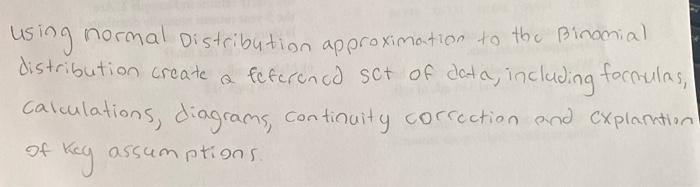 using normal Distribution approximation to the Binomial
distribution create a referenced set of data, including formulas,
calculations, diagrams, continuity correction and explanation
of key assumptions.